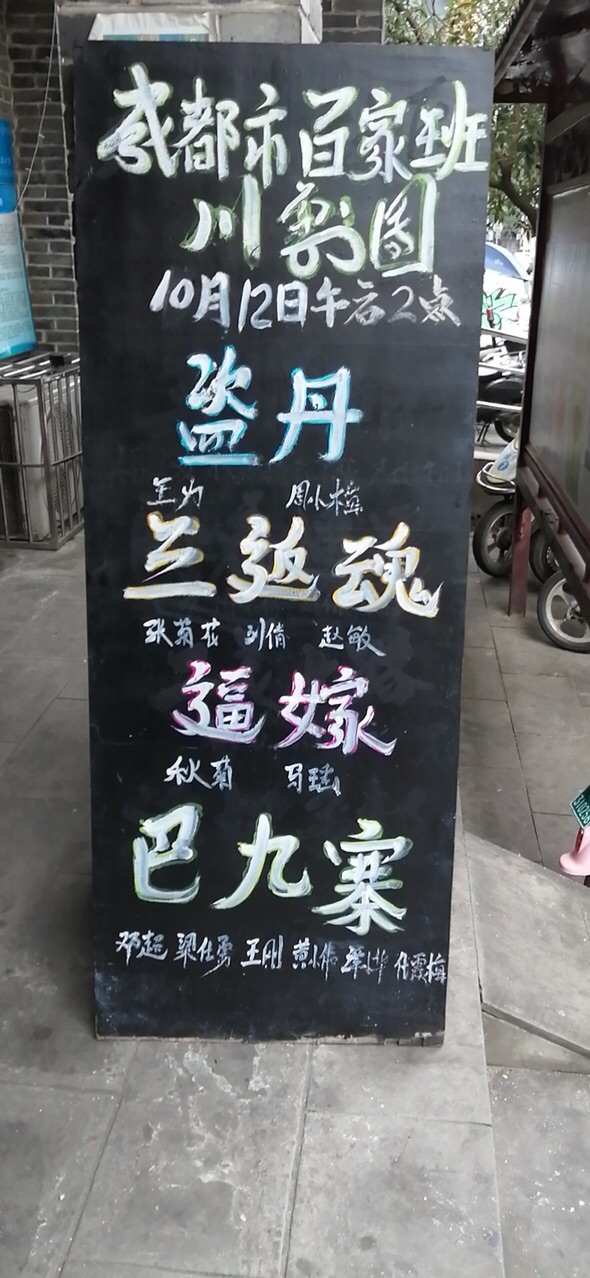 成都市百家班
川剧团
10月12日午后2点
盗丹
王力 周小
兰返魂
张菊花 刘倩 赵敏
逼嫁
秋菊 马瑶
巴九寨
邓超 梁仕勇 王刚 黄小伟 任霞梅